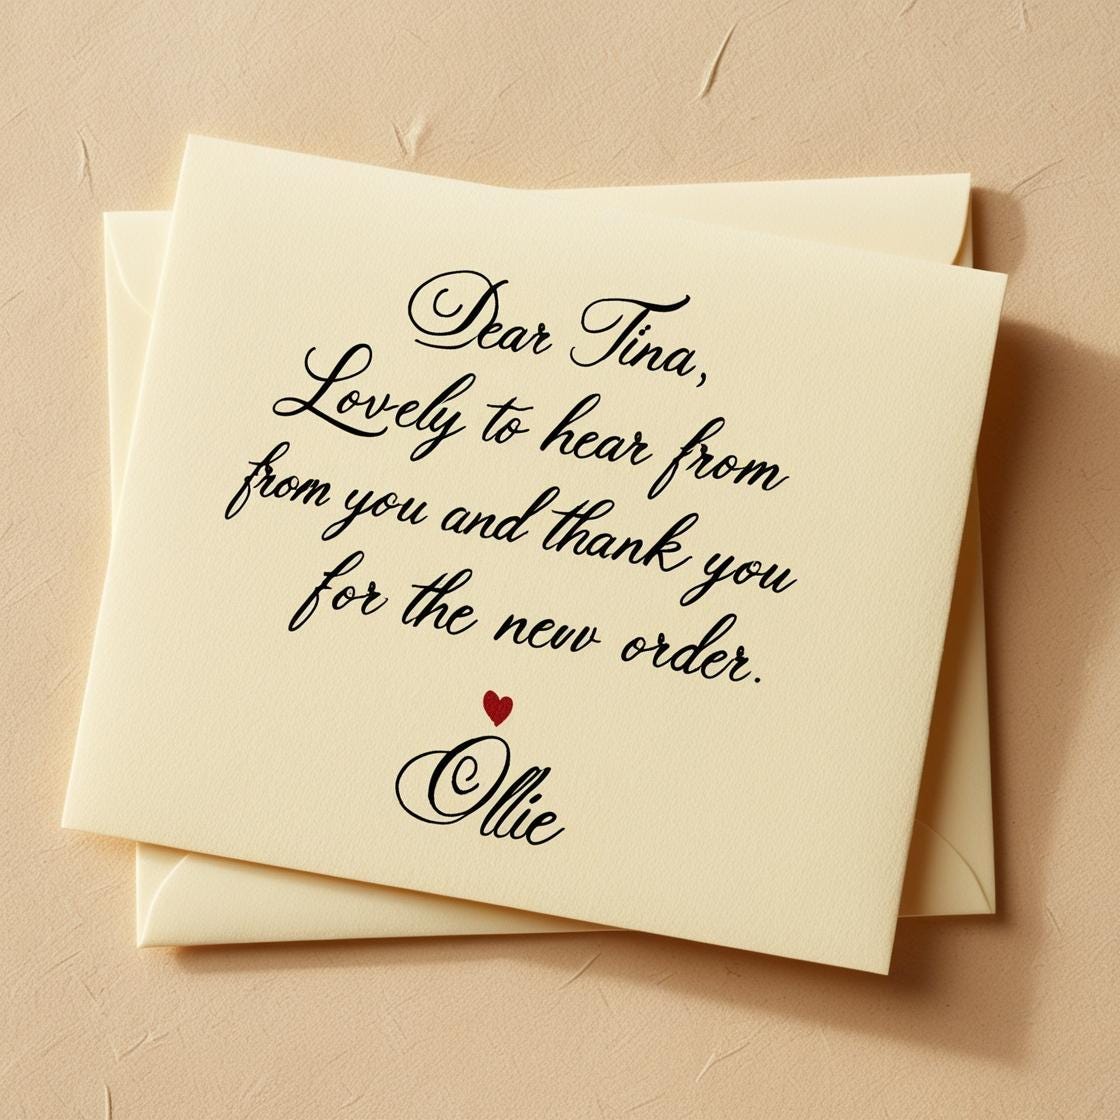 Dear Tina,
Lovely to hear from
from you and thank you
for the new order.
Ollie